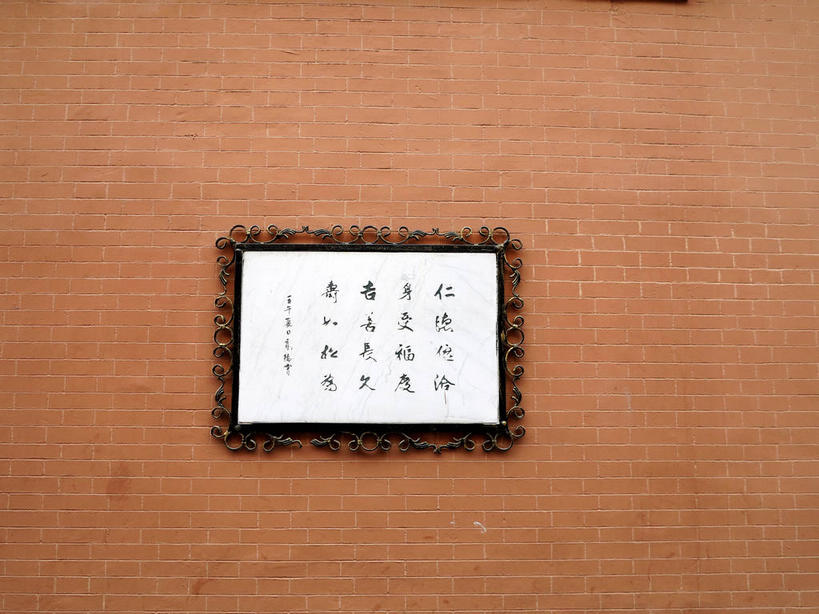 仁德优洽
身受福庆
吉善長久
壽如松